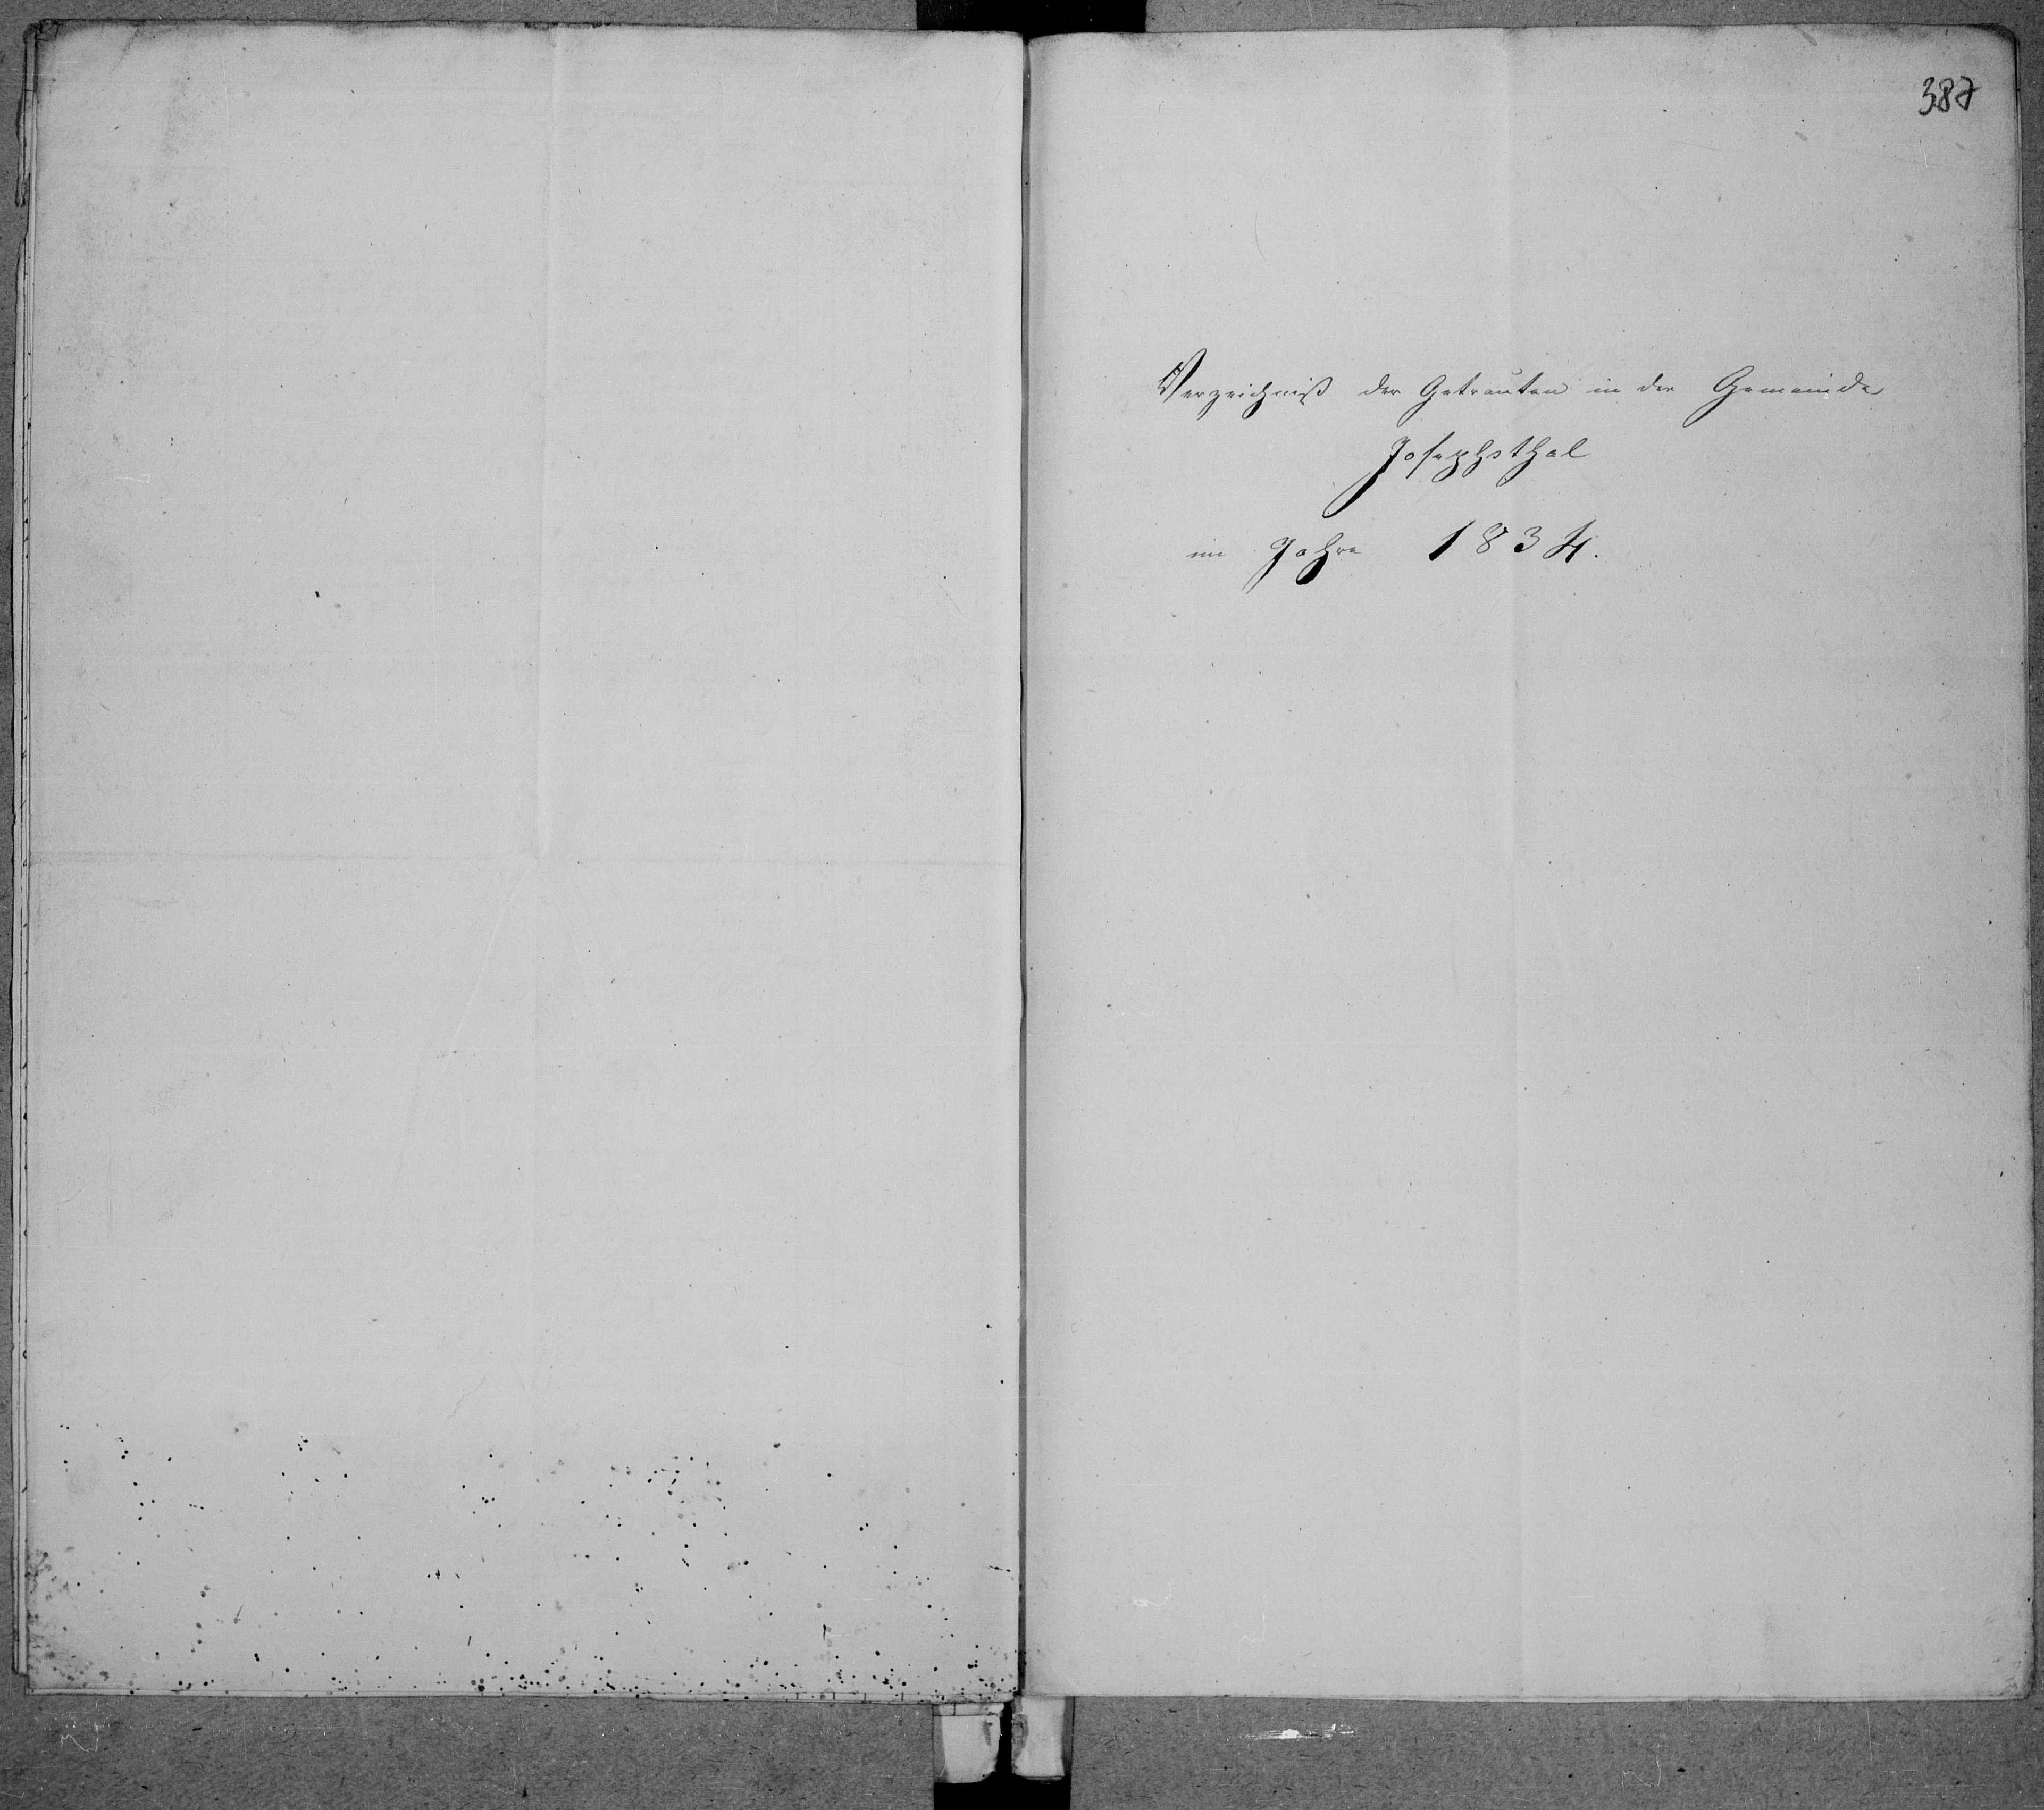 387
Verzeichniß der Getrauten in der Gemeinde
Josephsthal
im Jahre 1834.